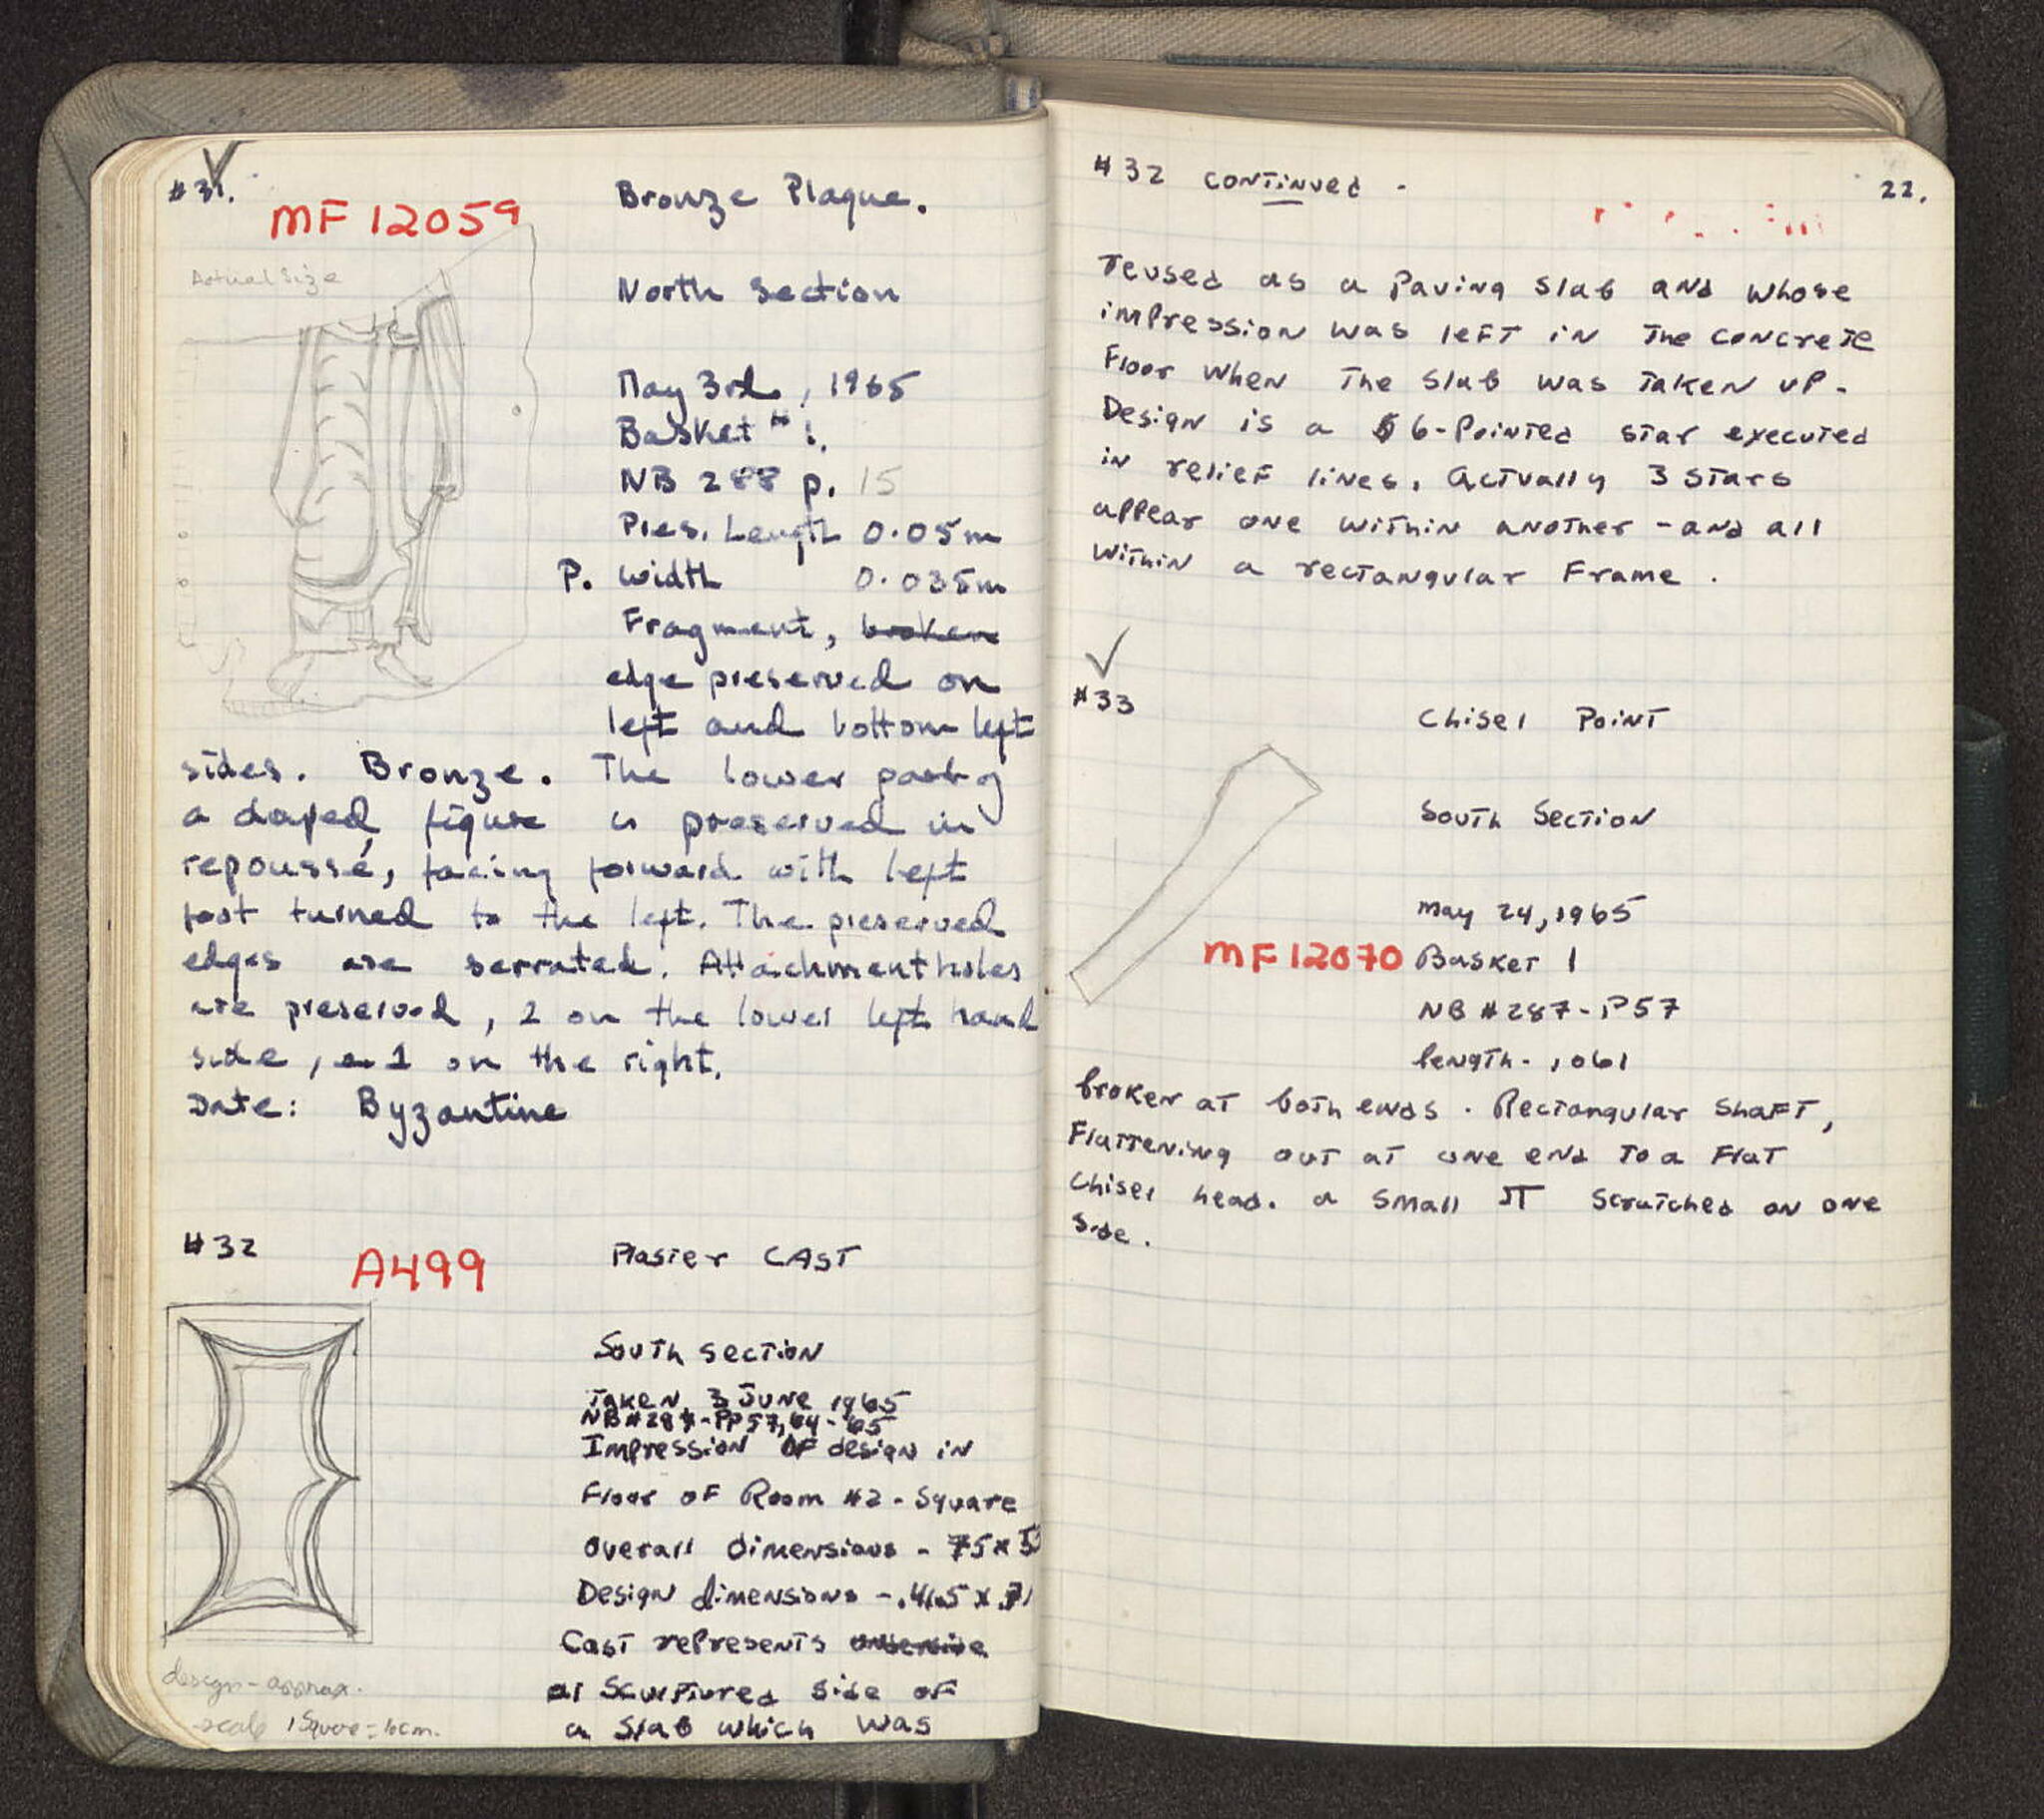 #31.
MF 12059
Actual Size
Bronze Plaque.
North Section
May 3rd, 1965
Basket # 1.
NB 288 p. 15
Pres. Length 0.05m
P. width 0.035m
Fragment, broken
edge preserved on
left and bottom left
sides. Bronze. The lower part of
a draped figure is preserved in
repoussé, facing forward with left
foot turned to the left. The preserved
edges are serrated. Attachment holes
are preserved, 2 on the lower left hand
side, 1 on the right.
Date: Byzantine
#32
A499
Plaster CAST
South section
Taken 3 June 1965
NB #287-PP57,64-65
Impression of design in
Floor of Room #2 - Square
overall dimensions - 75 x
Design dimensions - .465 x .71
Cast represents
a sculptured side of
a slab which was
design - approx.
scale 1 square = 10cm.
#32 continued -
22.
reused as a paving slab and whose
impression was left in the concrete
Floor when the slab was taken up.
Design is a 6-pointed star executed
in relief lines. Actually 3 stars
appear one within another - and all
within a rectangular Frame.
#33
Chisel Point
South Section
May 24, 1965
MF 12070
Basket 1
NB #287-P57
length - .061
broken at both ends. Rectangular shaft,
Flattening out at one end to a Flat
chisel head. a small π scratched on one
side.